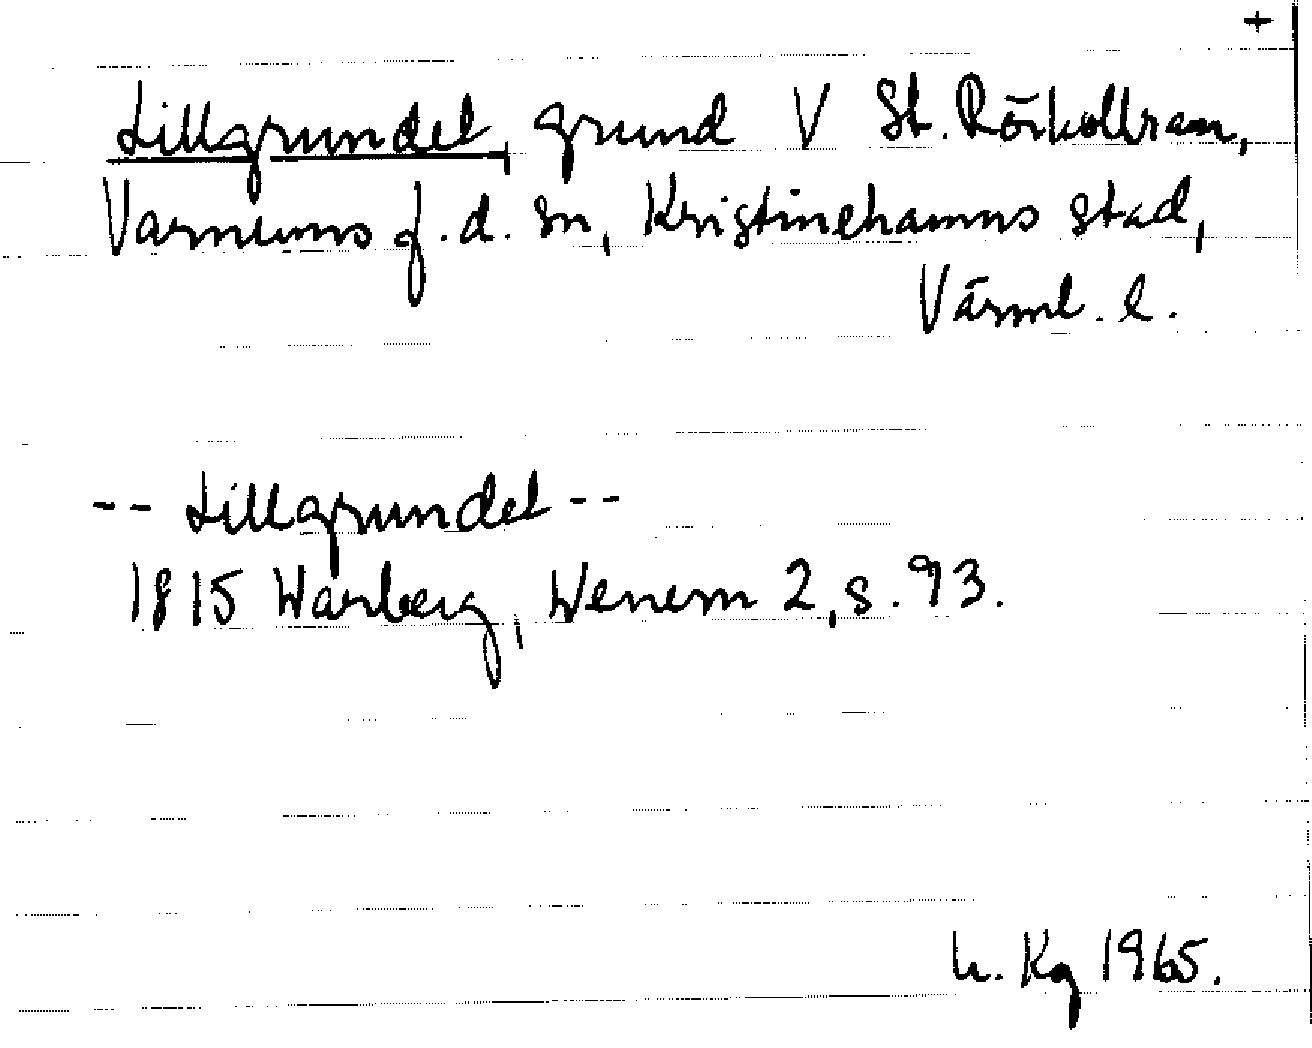 +
Lillgrundet, grund V St. Rörkollran,
Varnums f.d. sn, Kristinehamns stad,
Värml. l.
-- Lillgrundet --
1815 Warberg, Wenern 2, s. 93.
h. Kg 1965.